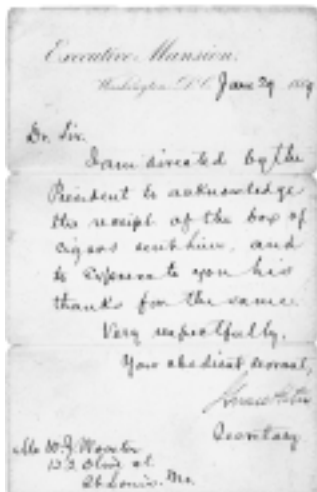 Executive Mansion.
Washington, D.C. June 29 1889
Dr. Sir.
I am directed by the
President to acknowledge
the receipt of the box of
cigars sent him, and
to express to you his
thanks for the same.
Very respectfully,
Your obedient servant,
Secretary
Mr W. J.
Olive st
St Louis. Mo.